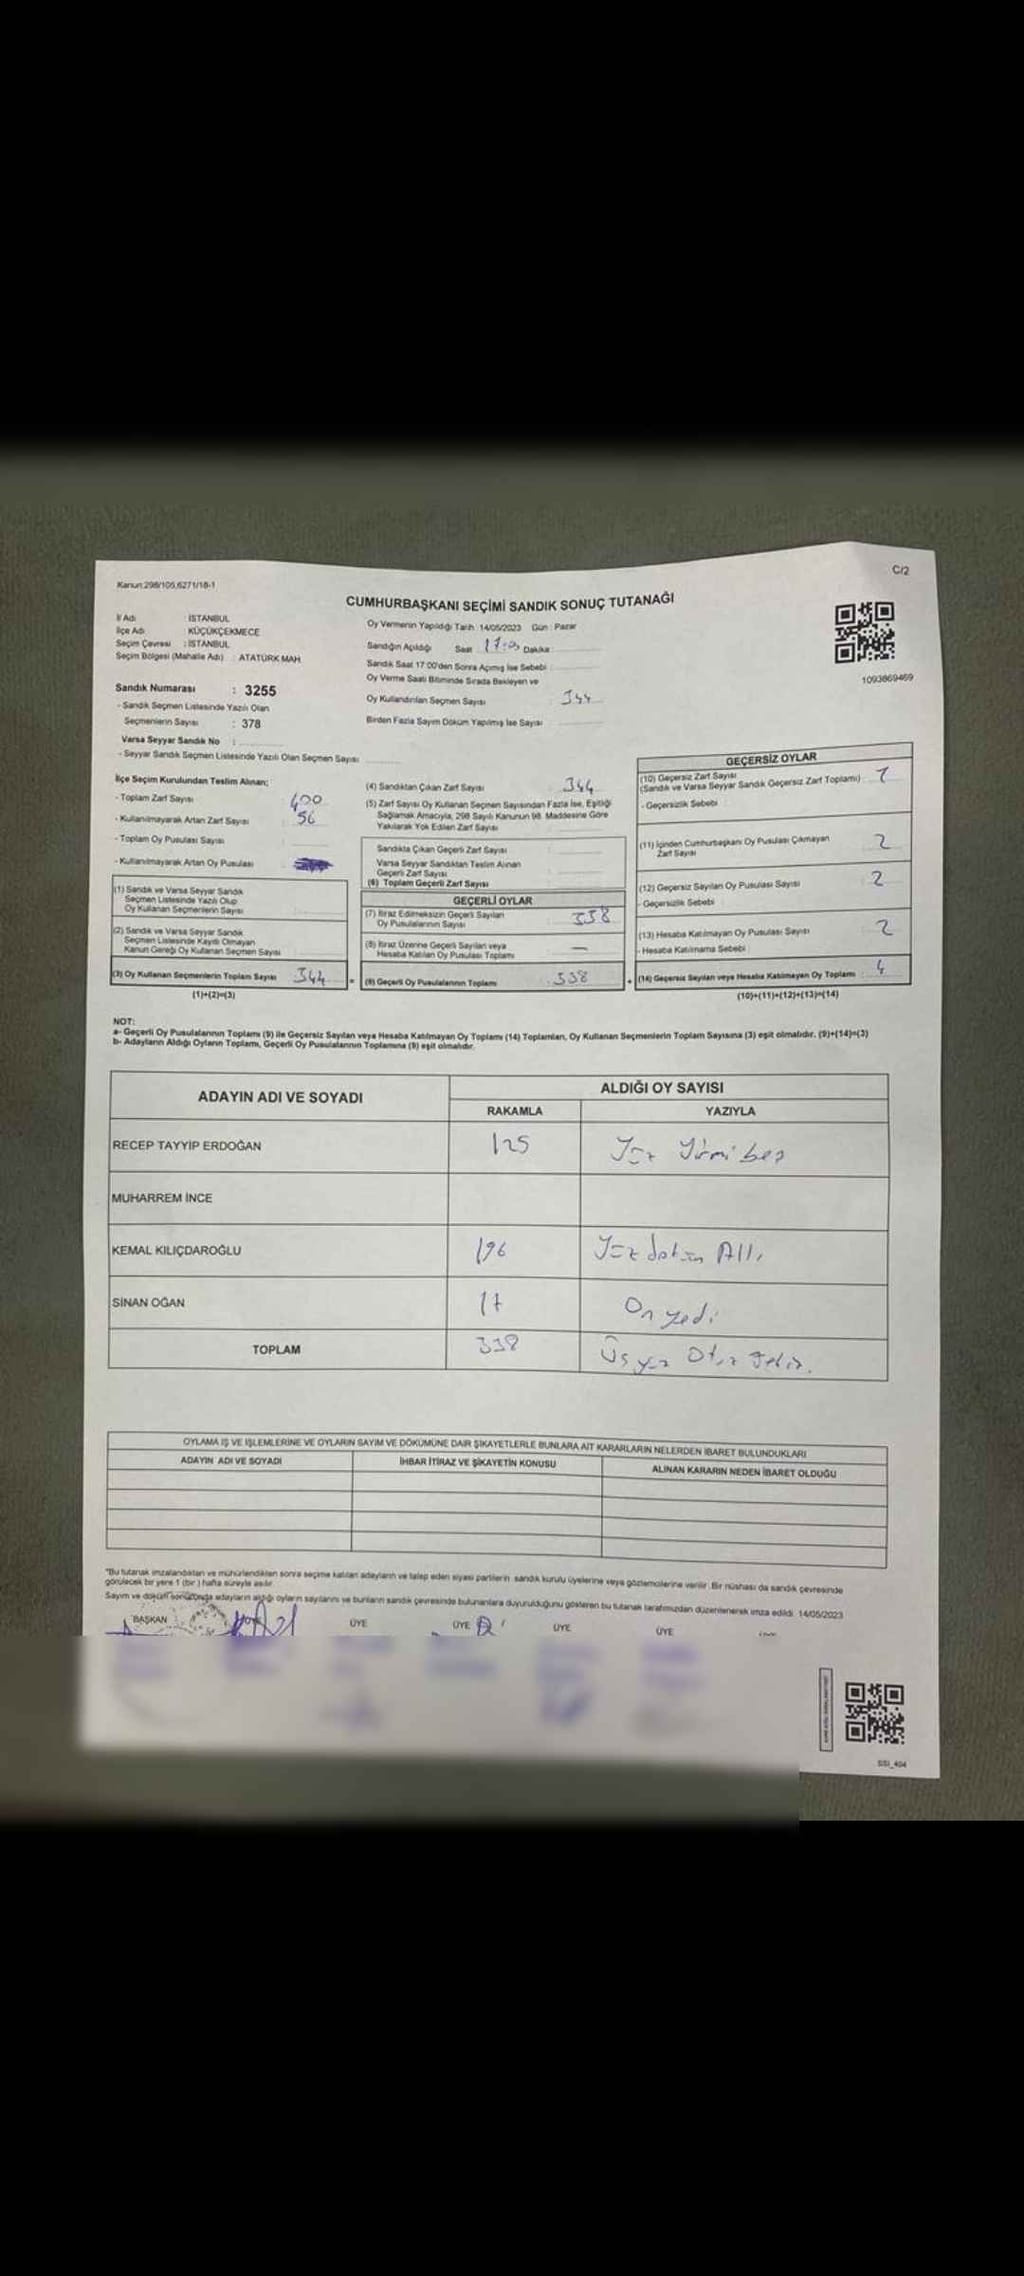 Kanun:298/105,6271/18-1
C/2
CUMHURBAŞKANI SEÇİMİ SANDIK SONUÇ TUTANAĞI
İl Adı : İSTANBUL
İlçe Adı : KÜÇÜKÇEKMECE
Seçim Çevresi : İSTANBUL
Seçim Bölgesi (Mahalle Adı) : ATATÜRK MAH
Sandık Numarası : 3255
- Sandık Seçmen Listesinde Yazılı Olan
Seçmenlerin Sayısı : 378
Varsa Seyyar Sandık No :
- Seyyar Sandık Seçmen Listesinde Yazılı Olan Seçmen Sayısı
Oy Vermenin Yapıldığı Tarih: 14/05/2023 Gün : Pazar
Sandığın Açıldığı Saat 17:00 Dakika
Sandık Saat 17:00'den Sonra Açımış İse Sebebi
Oy Verme Saati Bitiminde Sırada Bekleyen ve
Oy Kullandırılan Seçmen Sayısı 344
Birden Fazla Sayım Döküm Yapılmış İse Sayısı
1093869469
İlçe Seçim Kurulundan Teslim Alınan;
- Toplam Zarf Sayısı 400
- Kullanılmayarak Artan Zarf Sayısı 56
- Toplam Oy Pusulası Sayısı
- Kullanılmayarak Artan Oy Pusulası
(1) Sandık ve Varsa Seyyar Sandık
Seçmen Listesinde Yazılı Olup
Oy Kullanan Seçmenlerin Sayısı
(2) Sandık ve Varsa Seyyar Sandık
Seçmen Listesinde Kayıtlı Olmayan
Kanun Gereği Oy Kullanan Seçmen Sayısı
(3) Oy Kullanan Seçmenlerin Toplam Sayısı 344
(1)+(2)=(3)
(4) Sandıktan Çıkan Zarf Sayısı 344
(5) Zarf Sayısı Oy Kullanan Seçmen Sayısından Fazla İse, Eşitliği
Sağlamak Amacıyla, 298 Sayılı Kanunun 98. Maddesine Göre
Yakılarak Yok Edilen Zarf Sayısı
Sandıkta Çıkan Geçerli Zarf Sayısı
Varsa Seyyar Sandıktan Teslim Alınan
Geçerli Zarf Sayısı
(6) Toplam Geçerli Zarf Sayısı
GEÇERLİ OYLAR
(7) İtiraz Edilmeksizin Geçerli Sayılan
Oy Pusulalarının Sayısı 338
(8) İtiraz Üzerine Geçerli Sayılan veya
Hesaba Katılan Oy Pusulası Toplamı —
= (9) Geçerli Oy Pusulalarının Toplamı 338
GEÇERSİZ OYLAR
(10) Geçersiz Zarf Sayısı
(Sandık ve Varsa Seyyar Sandık Geçersiz Zarf Toplamı)
- Geçersizlik Sebebi
(11) İçinden Cumhurbaşkanı Oy Pusulası Çıkmayan
Zarf Sayısı 2
(12) Geçersiz Sayılan Oy Pusulası Sayısı 2
- Geçersizlik Sebebi
(13) Hesaba Katılmayan Oy Pusulası Sayısı 2
- Hesaba Katılmama Sebebi
+ (14) Geçersiz Sayılan veya Hesaba Katılmayan Oy Toplamı 4
(10)+(11)+(12)+(13)=(14)
NOT:
a- Geçerli Oy Pusulalarının Toplamı (9) ile Geçersiz Sayılan veya Hesaba Katılmayan Oy Toplamı (14) Toplamları, Oy Kullanan Seçmenlerin Toplam Sayısına (3) eşit olmalıdır. (9)+(14)=(3)
b- Adayların Aldığı Oyların Toplamı, Geçerli Oy Pusulalarının Toplamına (9) eşit olmalıdır.
ADAYIN ADI VE SOYADI
ALDIĞI OY SAYISI
RAKAMLA YAZIYLA
RECEP TAYYİP ERDOĞAN 125 Yüz Yirmi beş
MUHARREM İNCE
KEMAL KILIÇDAROĞLU 196 Yüz doksan Altı
SİNAN OĞAN 17 On yedi
TOPLAM 338 Üç yüz Otuz sekiz.
OYLAMA İŞ VE İŞLEMLERİNE VE OYLARIN SAYIM VE DÖKÜMÜNE DAİR ŞİKAYETLERLE BUNLARA AİT KARARLARIN NELERDEN İBARET BULUNDUKLARI
ADAYIN ADI VE SOYADI İHBAR İTİRAZ VE ŞİKAYETİN KONUSU ALINAN KARARIN NEDEN İBARET OLDUĞU
"Bu tutanak imzalandıktan ve mühürlendikten sonra seçime katılan adayların ve talep eden siyasi partilerin sandık kurulu üyelerine veya gözlemcilerine verilir. Bir nüshası da sandık çevresinde
görülecek bir yere 1 (bir ) hafta süreyle asılır.
Sayım ve döküm sonucunda adayların aldığı oyların sayılarını ve bunların sandık çevresinde bulunanlara duyurulduğunu gösteren bu tutanak tarafımızdan düzenlenerek imza edildi. 14/05/2023
BAŞKAN ÜYE ÜYE ÜYE ÜYE
SSI_404